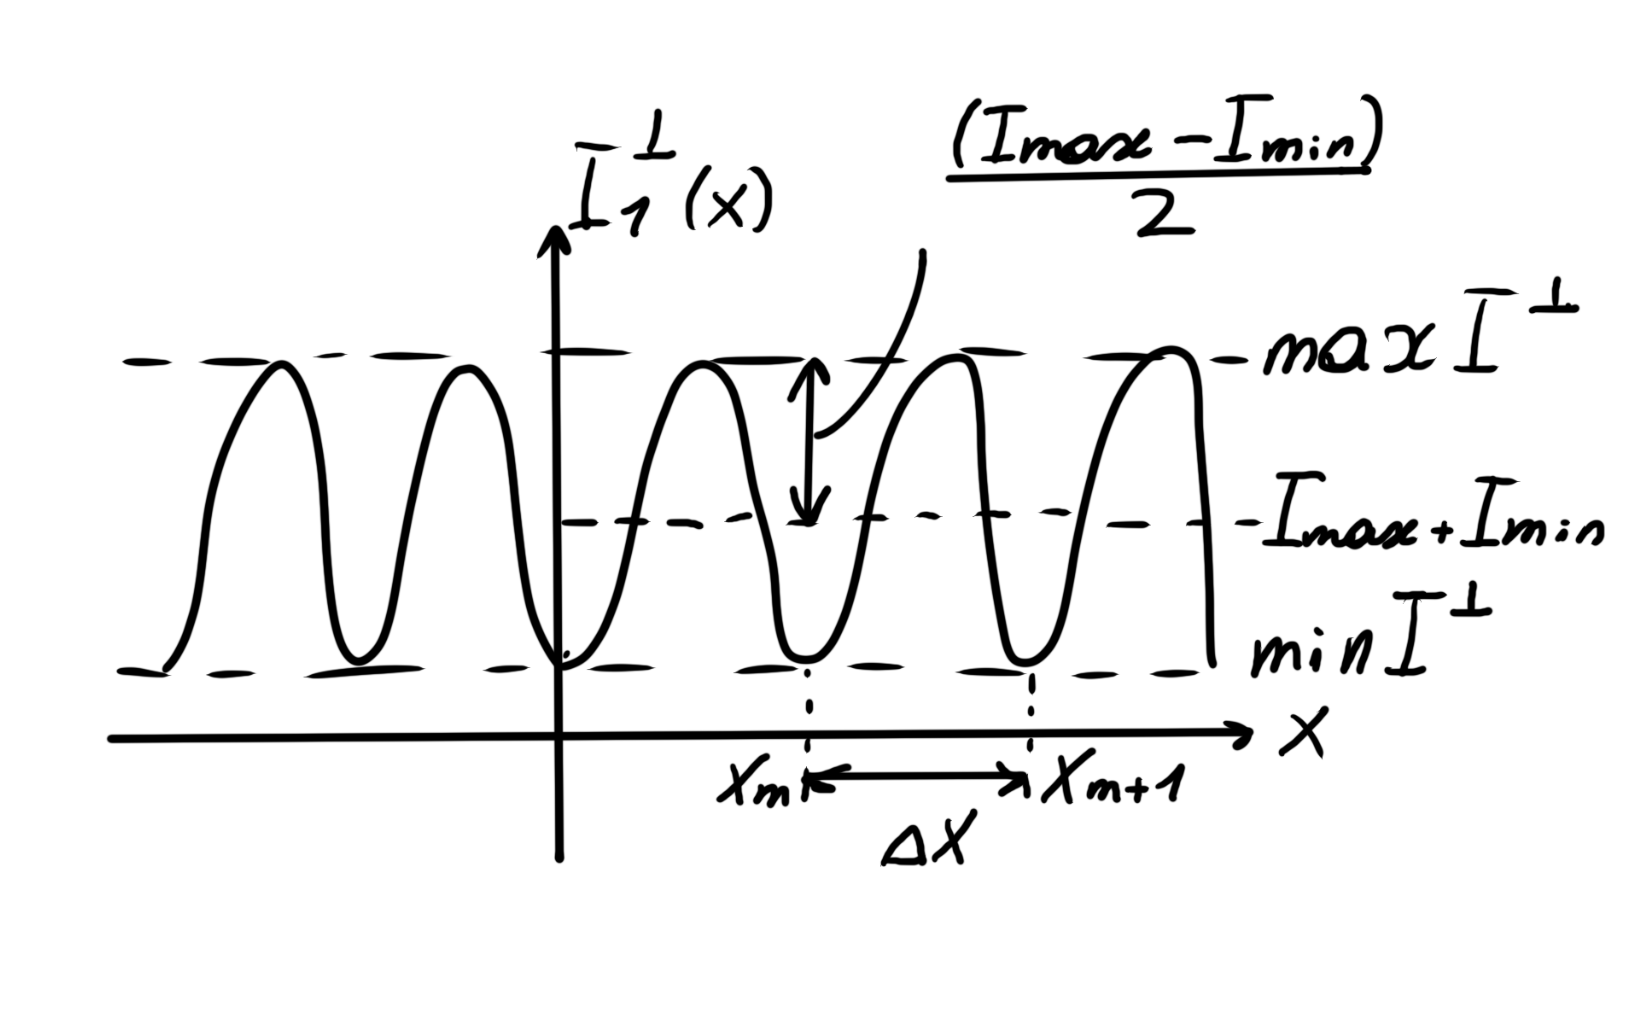 I₁⊥(x)
(Imax - Imin)
2
max I⊥
Imax + Imin
min I⊥
x
xm
xm+1
Δx